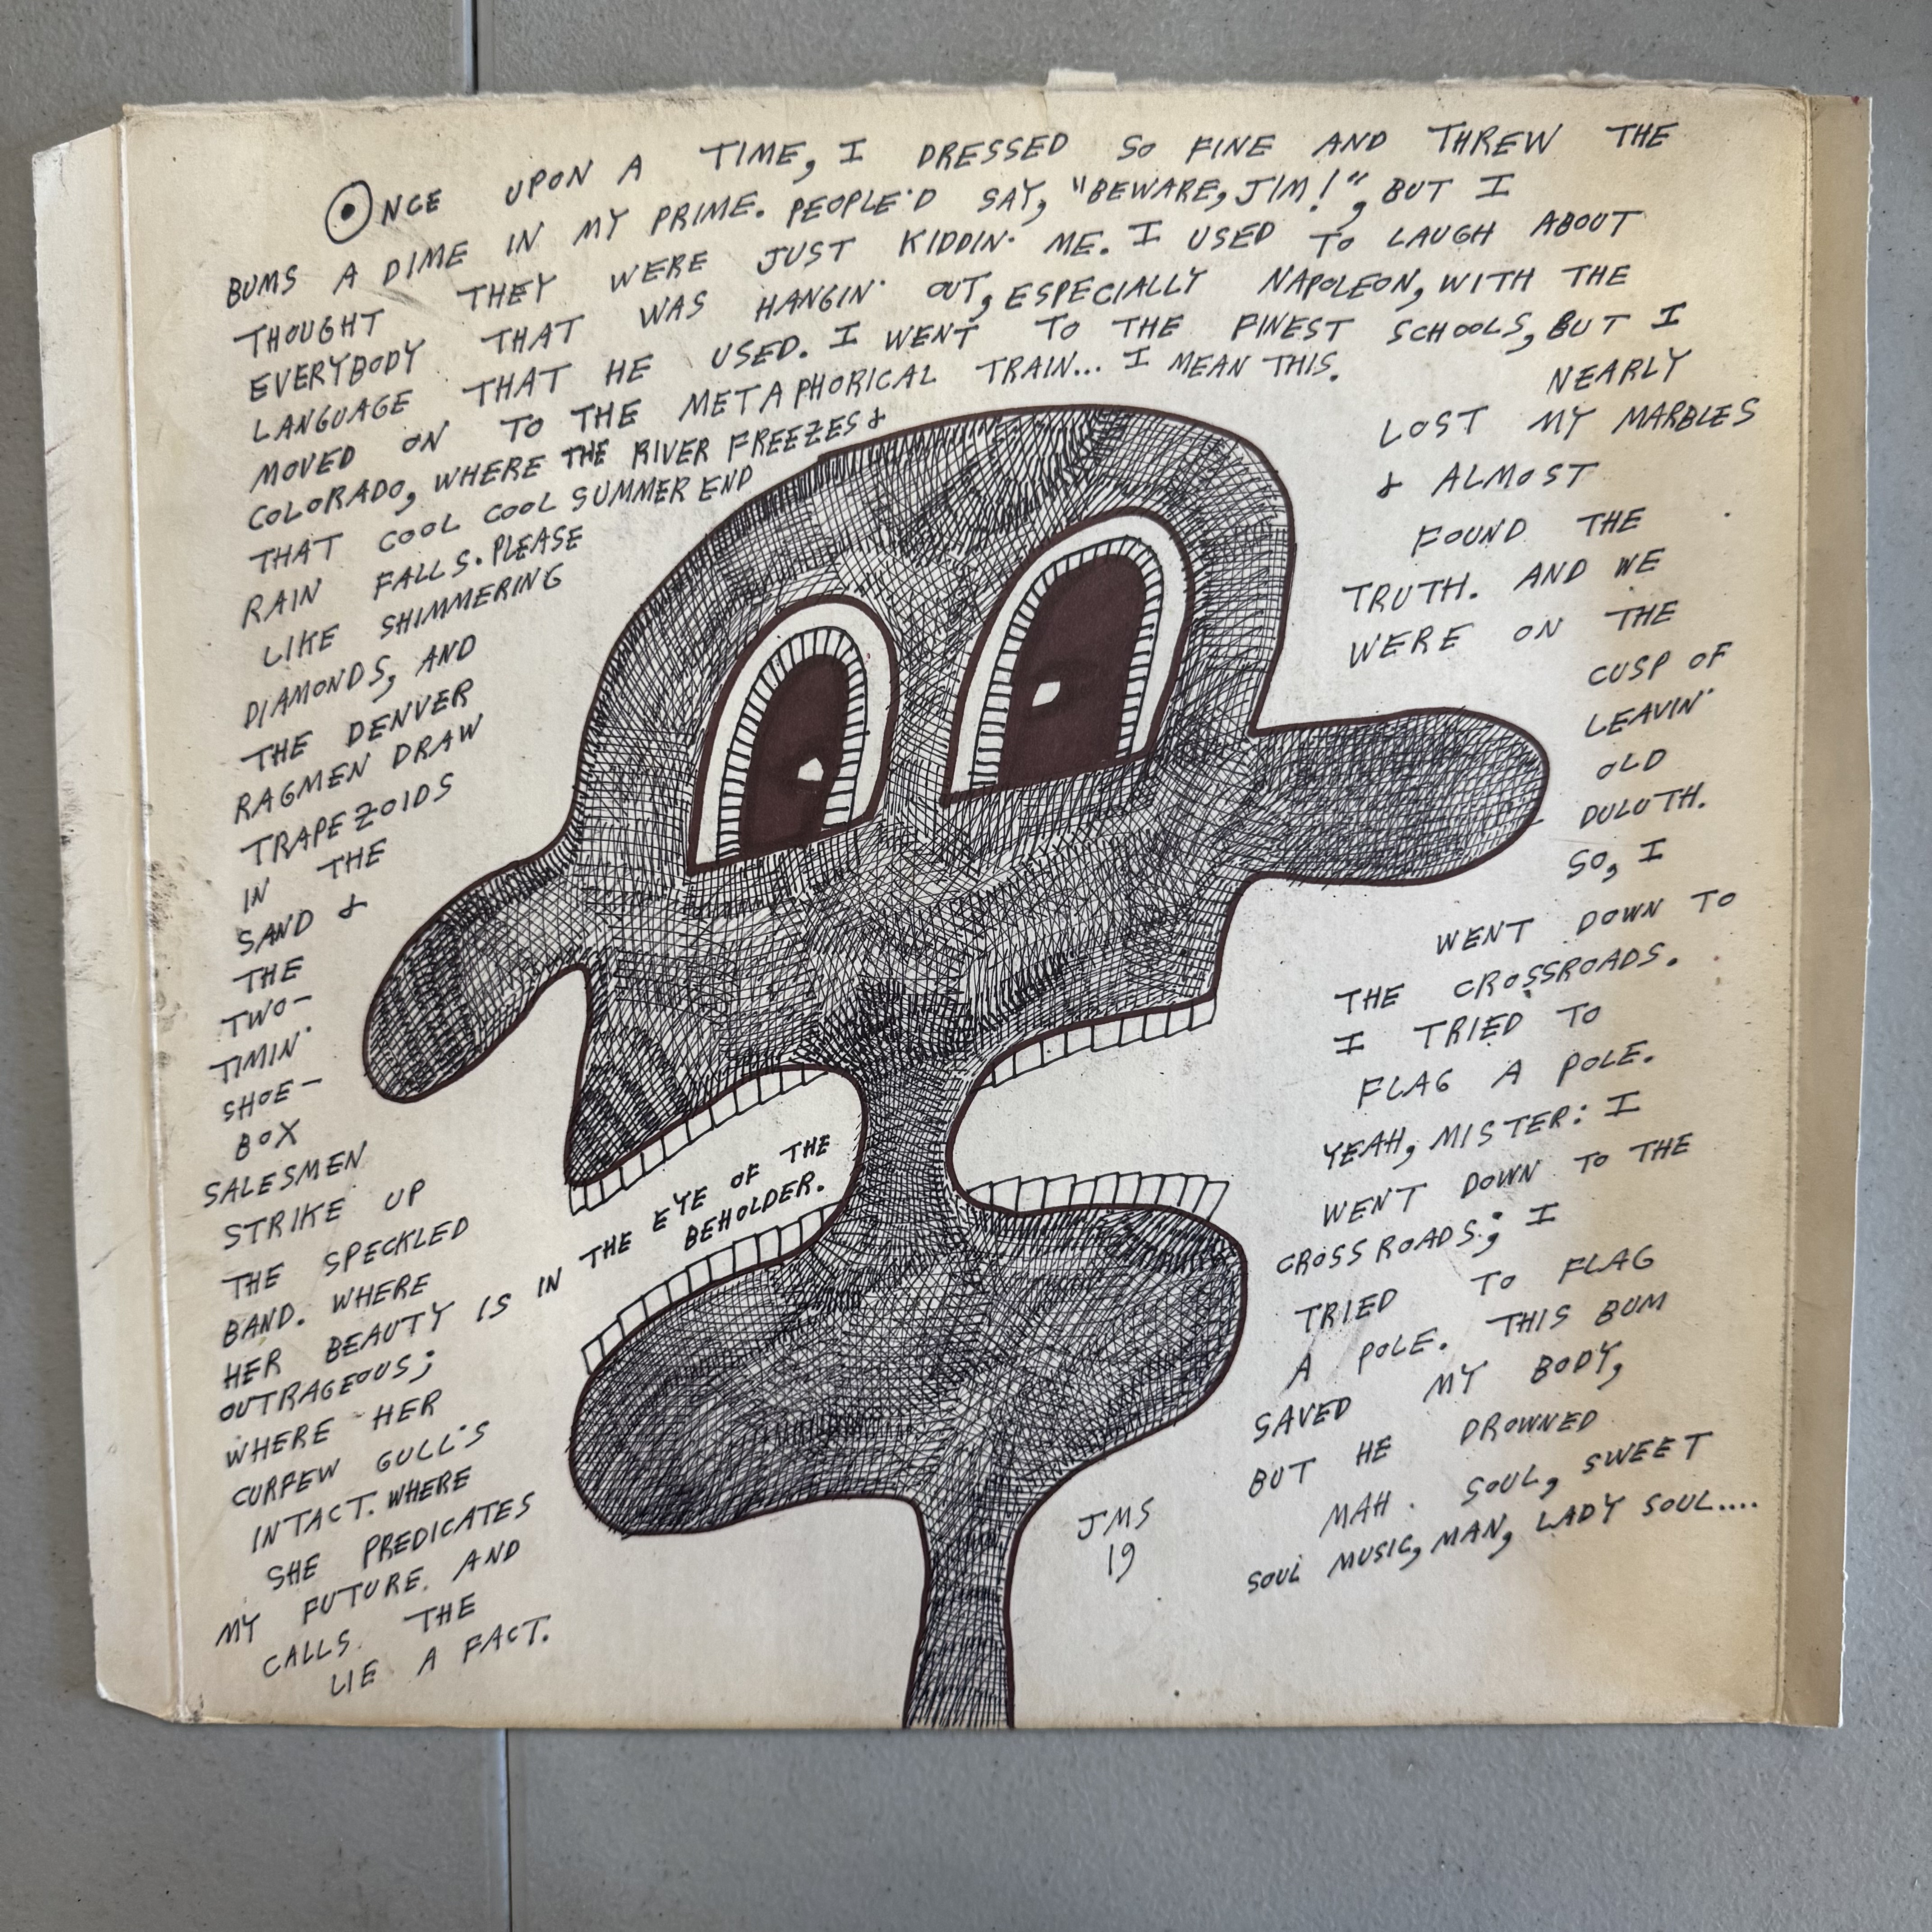 ONCE UPON A TIME, I DRESSED SO FINE AND THREW THE
BUMS A DIME IN MY PRIME. PEOPLE'D SAY, "BEWARE, JIM!", BUT I
THOUGHT THEY WERE JUST KIDDIN' ME. I USED TO LAUGH ABOUT
EVERYBODY THAT WAS HANGIN' OUT, ESPECIALLY NAPOLEON, WITH THE
LANGUAGE THAT HE USED. I WENT TO THE FINEST SCHOOLS, BUT I
MOVED ON TO THE METAPHORICAL TRAIN... I MEAN THIS.
COLORADO, WHERE THE RIVER FREEZES &
THAT COOL COOL SUMMER END
RAIN FALLS. PLEASE
LIKE SHIMMERING
DIAMONDS, AND
THE DENVER
RAGMEN DRAW
TRAPEZOIDS
IN THE
SAND &
THE
TWO-
TIMIN'
SHOE-
BOX
SALESMEN
STRIKE UP
THE SPECKLED
BAND. WHERE
HER BEAUTY IS IN THE EYE OF THE
BEHOLDER.
OUTRAGEOUS;
WHERE HER
CURFEW GULL'S
INTACT. WHERE
SHE PREDICATES
MY FUTURE. AND
CALLS THE
LIE A FACT.
NEARLY
LOST MY MARBLES
& ALMOST
FOUND THE
TRUTH. AND WE
WERE ON THE
CUSP OF
LEAVIN'
OLD
DULUTH.
SO, I
WENT DOWN TO
THE CROSSROADS.
I TRIED TO
FLAG A POLE.
YEAH, MISTER: I
WENT DOWN TO THE
CROSSROADS; I
TRIED TO FLAG
A POLE. THIS BUM
SAVED MY BODY,
BUT HE DROWNED
MAH SOUL, SWEET
SOUL MUSIC, MAN, LADY SOUL....
JMS
19